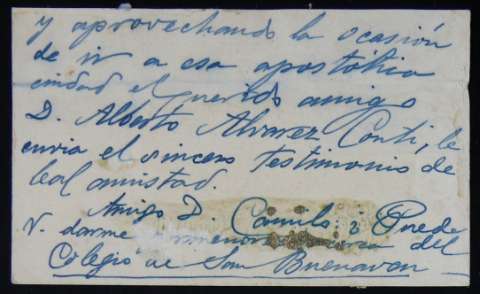 y aprovechando la ocasión
de ir a esa apostólica
ciudad el querido amigo
D. Alberto Alvarez Conti, le
envia el sincero testimonio de
leal amistad.
Amigo D. Camilo: ¿Puede
V. darme del
Colegio de San Buenaven